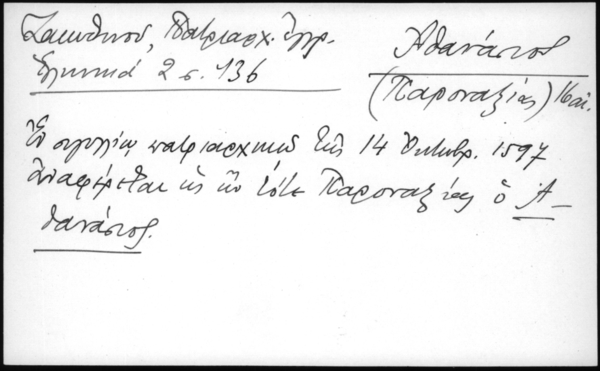 Ζακυθηνοῦ, Πατριαρχ. ἔγγρ.
Ἑλληνικά 2 σ. 136
Ἀθανάσιος
(Παροναξίας) 16 αἰ.
Ἐν σιγιλλίῳ πατριαρχικῷ τῆς 14 Ὀκτωβρ. 1597
ἀναφέρεται ὡς ὢν τότε Παροναξίας ὁ Ἀ-
θανάσιος.